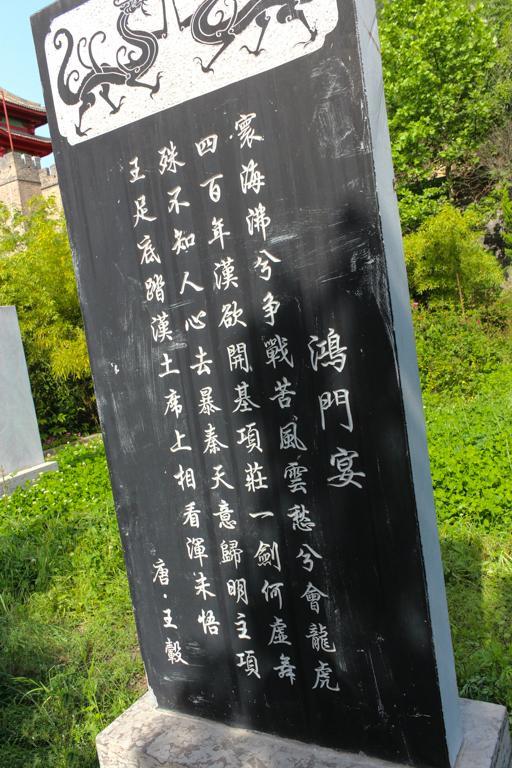 鴻門宴
寰海沸兮争戰苦風雲愁兮會龍虎
四百年漢欲開基項莊一劍何虛舞
殊不知人心去暴秦天意歸明主項
王足底踏漢土席上相看渾未悟
唐·王轂